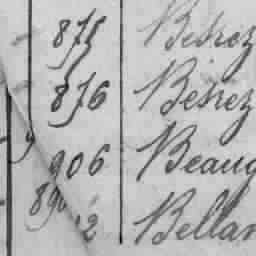 875 Besrez
876 Besrez
906 Beaug
890 2 Bellar